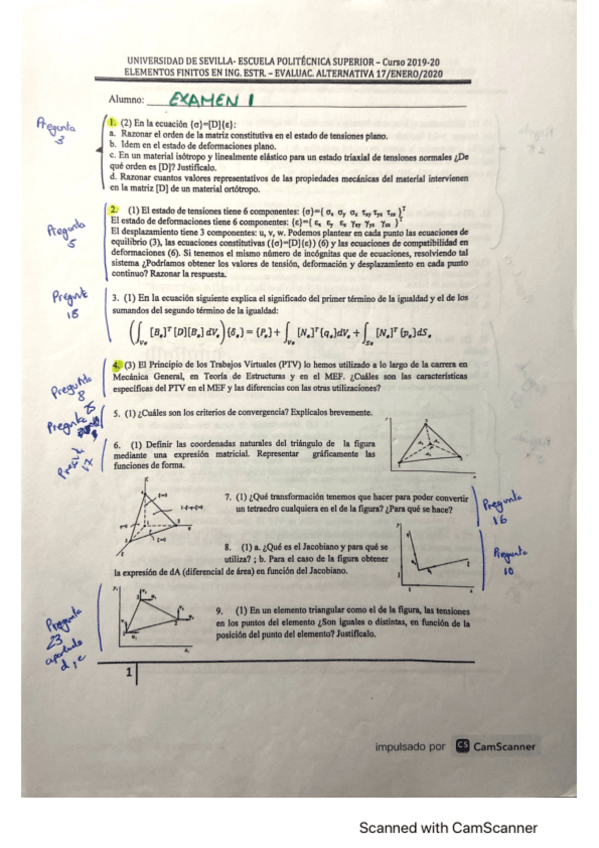 UNIVERSIDAD DE SEVILLA- ESCUELA POLITÉCNICA SUPERIOR – Curso 2019-20
ELEMENTOS FINITOS EN ING. ESTR. – EVALUAC. ALTERNATIVA 17/ENERO/2020
Alumno: EXAMEN 1
Pregunta
3
1. (2) En la ecuación {σ}=[D]{ε}:
a. Razonar el orden de la matriz constitutiva en el estado de tensiones plano.
b. Idem en el estado de deformaciones plano.
c. En un material isótropo y linealmente elástico para un estado triaxial de tensiones normales ¿De
qué orden es [D]? Justifícalo.
d. Razonar cuantos valores representativos de las propiedades mecánicas del material intervienen
en la matriz [D] de un material ortótropo.
Pregunta
5
2. (1) El estado de tensiones tiene 6 componentes: {σ}={ σx σy σz τxy τyz τzx }T
El estado de deformaciones tiene 6 componentes: {ε}={ εx εy εz γxy γyz γzx }T
El desplazamiento tiene 3 componentes: u, v, w. Podemos plantear en cada punto las ecuaciones de
equilibrio (3), las ecuaciones constitutivas ({σ}=[D]{ε}) (6) y las ecuaciones de compatibilidad en
deformaciones (6). Si tenemos el mismo número de incógnitas que de ecuaciones, resolviendo tal
sistema ¿Podríamos obtener los valores de tensión, deformación y desplazamiento en cada punto
continuo? Razonar la respuesta.
Pregunta
18
3. (1) En la ecuación siguiente explica el significado del primer término de la igualdad y el de los
sumandos del segundo término de la igualdad:
(∫Ve [Be]T[D][Be]dVe){δe} = {Pe} + ∫Ve [Ne]T{qe}dVe + ∫Se [Ne]T{pe}dSe
Pregunta
8
4. (3) El Principio de los Trabajos Virtuales (PTV) lo hemos utilizado a lo largo de la carrera en
Mecánica General, en Teoría de Estructuras y en el MEF. ¿Cuáles son las características
específicas del PTV en el MEF y las diferencias con las otras utilizaciones?
Pregunta
5. (1) ¿Cuáles son los criterios de convergencia? Explícalos brevemente.
17
6. (1) Definir las coordenadas naturales del triángulo de la figura
mediante una expresión matricial. Representar gráficamente las
funciones de forma.
7. (1) ¿Qué transformación tenemos que hacer para poder convertir
un tetraedro cualquiera en el de la figura? ¿Para qué se hace?
Pregunta
16
8. (1) a. ¿Qué es el Jacobiano y para qué se
utiliza? ; b. Para el caso de la figura obtener
la expresión de dA (diferencial de área) en función del Jacobiano.
Pregunta
10
Pregunta
23
apartado
d, e
9. (1) En un elemento triangular como el de la figura, las tensiones
en los puntos del elemento ¿Son iguales o distintas, en función de la
posición del punto del elemento? Justifícalo.
1
impulsado por CS CamScanner
Scanned with CamScanner